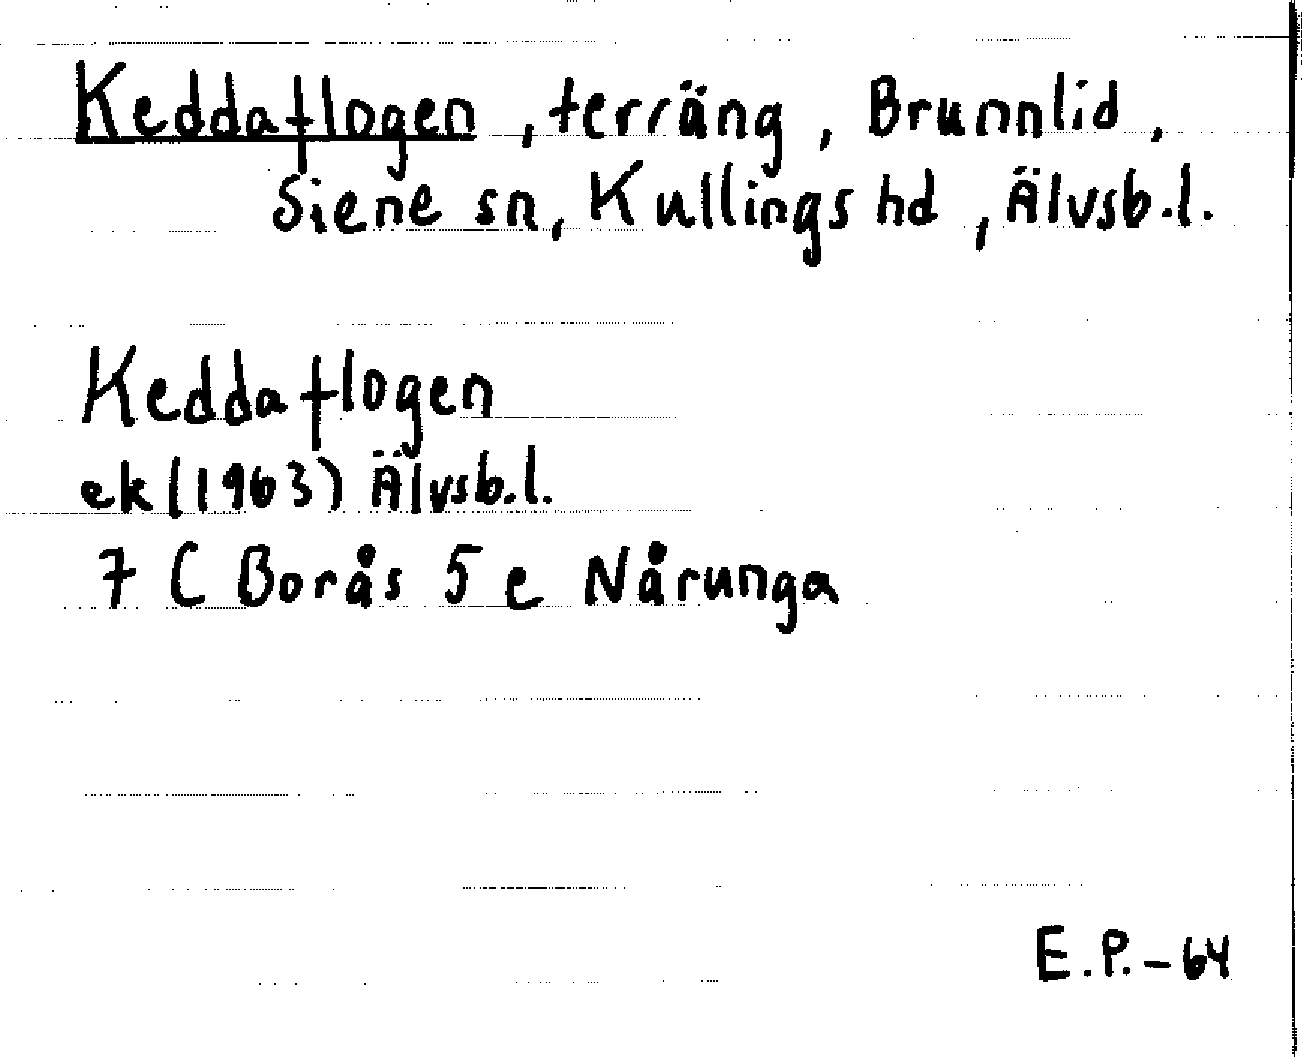 Keddaflogen, terräng, Brunnlid,
Siene sn, Kullings hd, Älvsb.l.
Keddaflogen
ek (1963) Älvsb.l.
7 C Borås 5 e Nårunga
E.P.-64